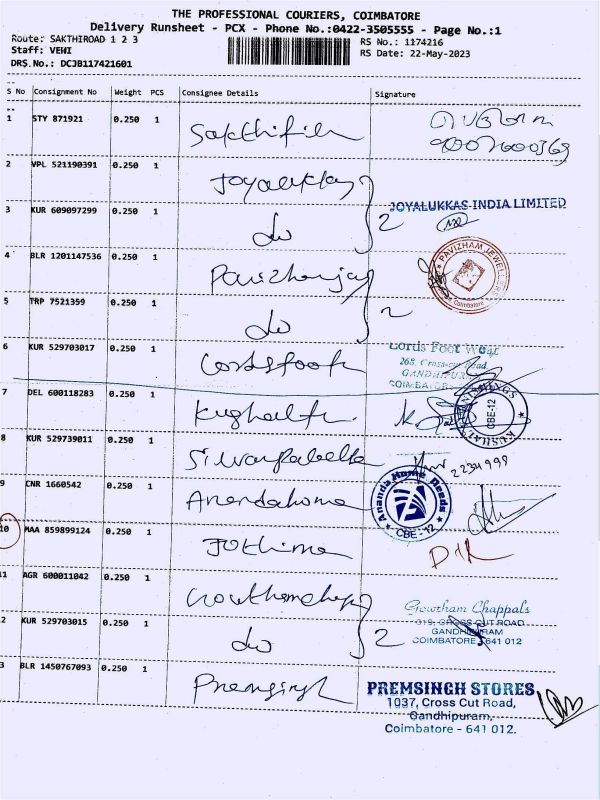 THE PROFESSIONAL COURIERS, COIMBATORE
Delivery Runsheet - PCX - Phone No.:0422-3505555 - Page No.:1
Route: SAKTHIROAD 1 2 3
RS No.: 1174216
Staff: VEHI
RS Date: 22-May-2023
DRS.No.: DCJB117421601
S No Consignment No Weight PCS Consignee Details Signature
1 STY 871921 0.250 1
2 VPL 521190391 0.250 1 Joyalukkas
JOYALUKKAS INDIA LIMITED
3 KUR 609097299 0.250 1 do 2
4 BLR 1201147536 0.250 1
PAVIZHAM JEWEL
Coimbatore
5 TRP 7521359 0.250 1 do 2
6 KUR 529703017 0.250 1
Lotus Foot Wear
268, Cross-cut Road
GANDHIPUR
COIMBATOR
7 DEL 600118283 0.250 1
CBE-12
8 KUR 529739011 0.250 1
2234998
9 CNR 1660542 0.250 1 Anandahome
Ananda Home Needs
CBE - 12
10 MAA 859899124 0.250 1 Jothima
11 AGR 600011042 0.250 1
Gowtham Chappals
CROSS CUT ROAD
GANDHIPURAM
COIMBATORE 641 012
2 KUR 529703015 0.250 1 do 2
3 BLR 1450767093 0.250 1 Premsingh
PREMSINGH STORES
1037, Cross Cut Road,
Gandhipuram,
Coimbatore - 641 012.